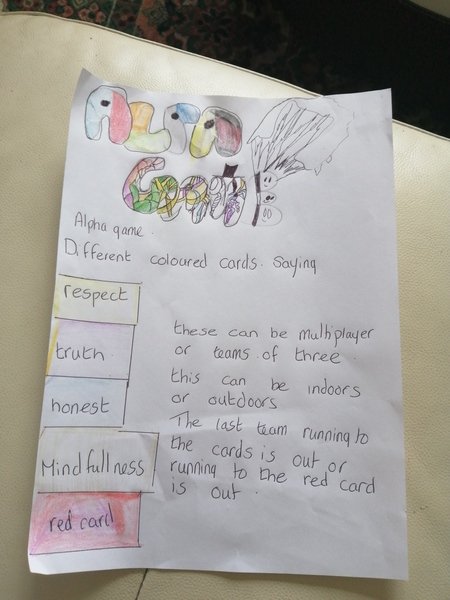 ALPA
Game
Alpha game.
Different coloured cards. Saying
respect
truth.
honest
Mindfullness
red card
these can be multiplayer
or teams of three.
this can be indoors
or outdoors
The last team running to
the cards is out or
running to the red card
is out.